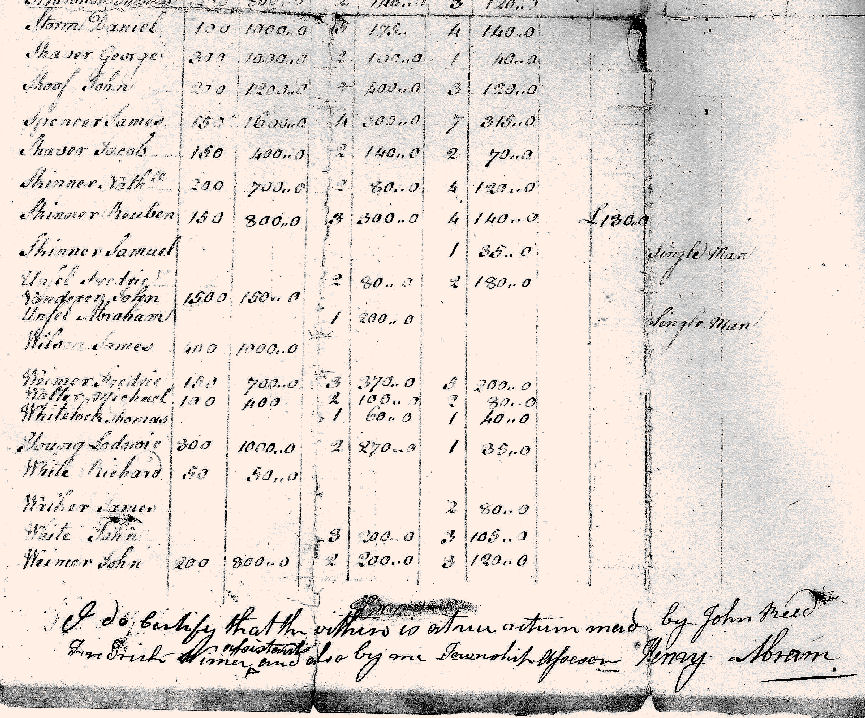 Storm Daniel 100 1000..0 3 175.. 4 140..0
Shaver George 200 1000..0 2 100..0 1 40..0
Shoaf John 200 1200..0 2 400..0 3 120..0
Spencer James 150 1600..0 4 300..0 7 315..0
Shaver Jacob 150 400..0 2 140..0 2 70..0
Skinner Nathll 200 700..0 2 80..0 4 120..0
Skinner Reuben 150 800..0 3 300..0 4 140..0 £1300
Skinner Samuel 1 35..0 Single Man
Unsel Fredric 2 80..0 2 180..0
John 1500 150..0
Unsel Abraham 1 200..0 Single Man
Wilson James 400 1000..0
Weimer Fredric 150 700..0 3 370..0 5 200..0
Walter Michael 100 400 2 100..0 2 80..0
Whitelock Thomas 1 60..0 1 40..0
Young Lodwic 300 1000..0 2 270..0 1 35..0
White Richard 50 50..0
James 2 80..0
White John 3 200..0 3 105..0
Weimer John 200 800..0 2 200..0 3 120..0
I do Certify that the within is a true return made by John Reed
assistants
and also by me Township Assessor Henry Abram.